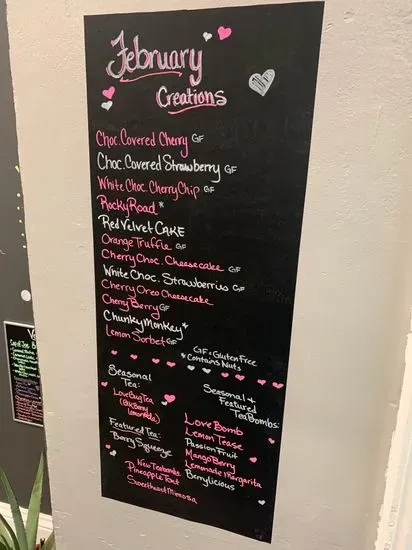 February
Creations
Choc. Covered Cherry GF
Choc. Covered Strawberry GF
White Choc. Cherry Chip GF
Rocky Road *
Red Velvet CAKE
Orange Truffle GF
Cherry Choc. Cheesecake GF
White Choc. Strawberries GF
Cherry Oreo Cheesecake
Cherry Berry GF
Chunky Monkey *
Lemon Sorbet GF
GF: Gluten Free
* Contains Nuts
Seasonal
Tea:
Love Bug Tea
(Blk Berry
Lemonade)
Featured Tea:
Berry Squeeze
New Teabombs:
Pineapple Tart
Sweetheart Mimosa
Seasonal &
Featured
Tea Bombs:
Love Bomb
Lemon Tease
Passion Fruit
Mango Berry
Lemonade Margarita
Berrylicious